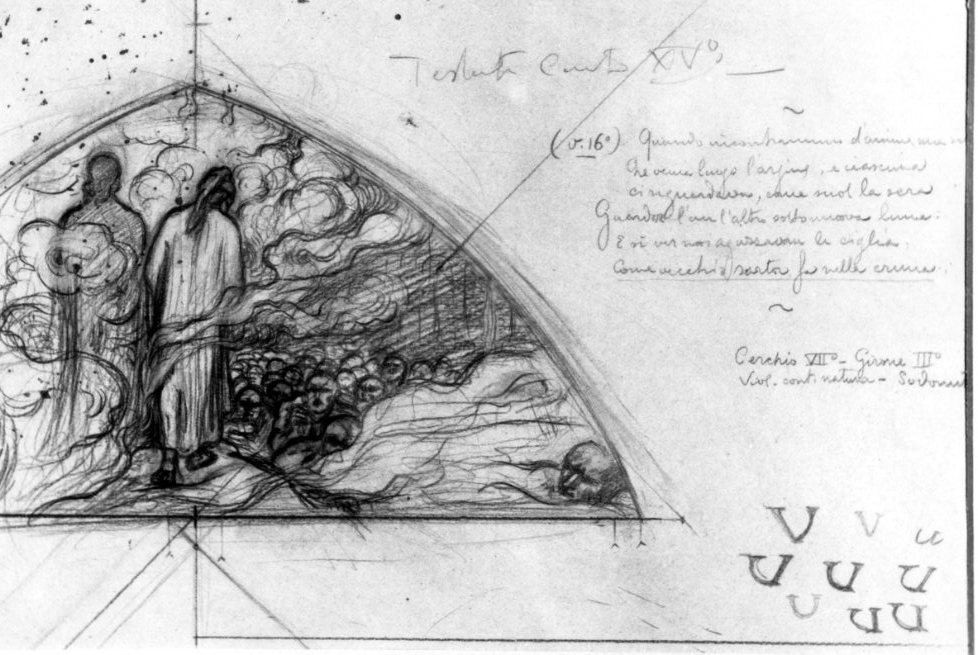 Testata Canto XV°
(v. 16°) Quando incontrammo d'anime una
Che venia lungo l'argine, e ciascuna
ci riguardava, come suol la sera
Guardar l'un l'altro sotto nuova luna:
E sì ver noi aguzzavan le ciglia,
Come vecchio sartor fa nella cruna.
Cerchio VII° - Girone III°
Viol. cont. natura - Sodomit
V V u
U U U
U U U